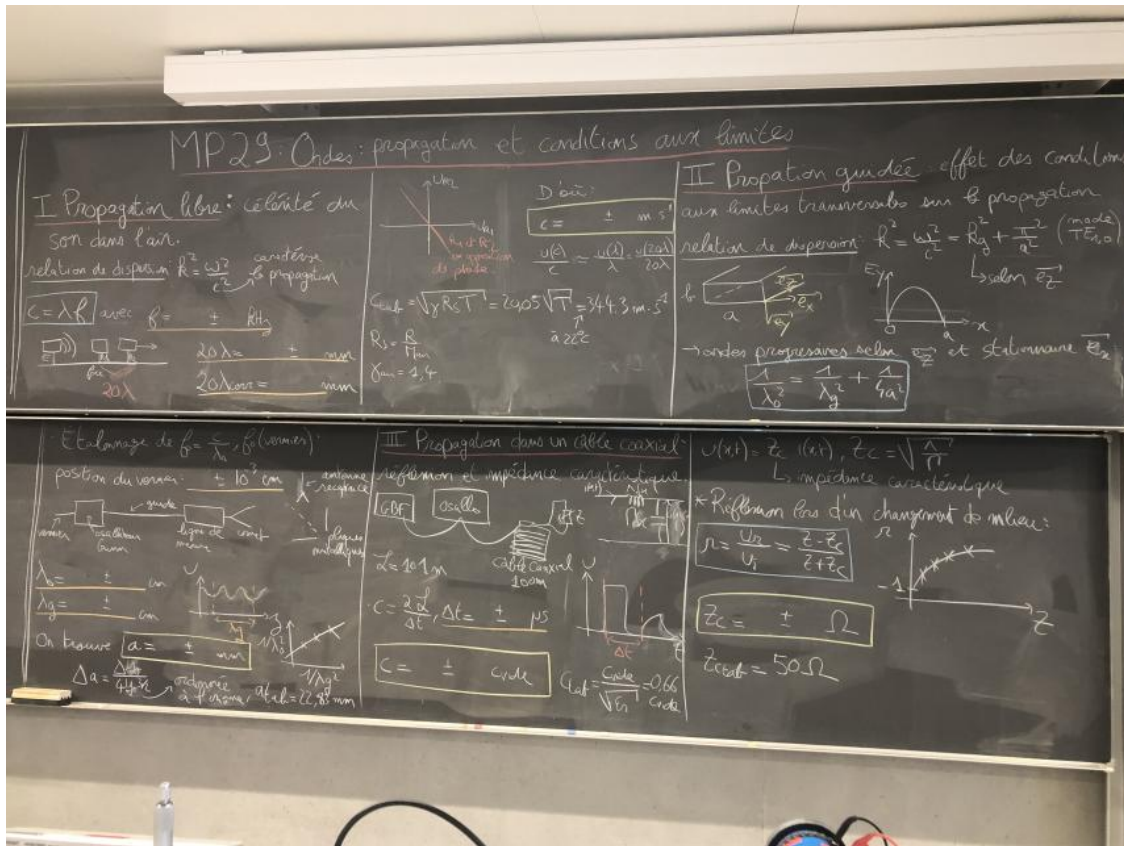 MP29: Ondes: propagation et conditions aux limites
I Propagation libre: célérité du
son dans l'air.
relation de dispersion k² = ω²/c² caractérise
la propagation
c = λf avec f = ± kHz
20λ = ± mm
fixe
20λ
20λcorr = mm
D'où:
c = ± m s⁻¹
en opposition
de phase
u(c)/c ≈ u(λ)/λ = u(20λ)/20λ
Ctab = √γRsT = 20,05 √T = 344.3 m.s⁻¹
à 22°C
Rs = R/Mair
γair = 1,4
II Propation guidée effet des conditions
aux limites transversales sur la propagation
relation de dispersion: k² = ω²/c² = kg² + π²/a² (mode TE1,0)
selon ez
Ey
b
a
ez
ex
ey
0 a x
→ ondes progressives selon ez et stationnaire ex
1/λ0² = 1/λg² + 1/4a²
Etalonnage de f = c/λ0, f(vernier):
position du vernier: ± 10⁻³ cm
antenne
réceptrice
guide
vernier
oscillateur
Gunn
ligne de
mesure
cornet
plaques
métalliques
λ0 = ± cm
λg = ± cm
U
λg
z
1/λ0²
1/λg²
On trouve a = ± mm
ordonnée
à l'origine, atab = 22,85 mm
III Propagation dans un câble coaxial
réflexion et impédance caractéristique
GBF
oscillo
Z
câble coaxial
100m
L = 101 m
c = 2L/Δt, Δt = ± μs
c = ± cvide
U
Δt
t
Ctab = cvide/√εr = 0,66
cvide
v(x,t) = Zc i(x,t), Zc = √Λ/Γ
impédance caractéristique
* Réflexion lors d'un changement de milieu:
r = Ur/Ui = Z-Zc/Z+Zc
r
-1
Z
Zc = ± Ω
Zctab = 50Ω